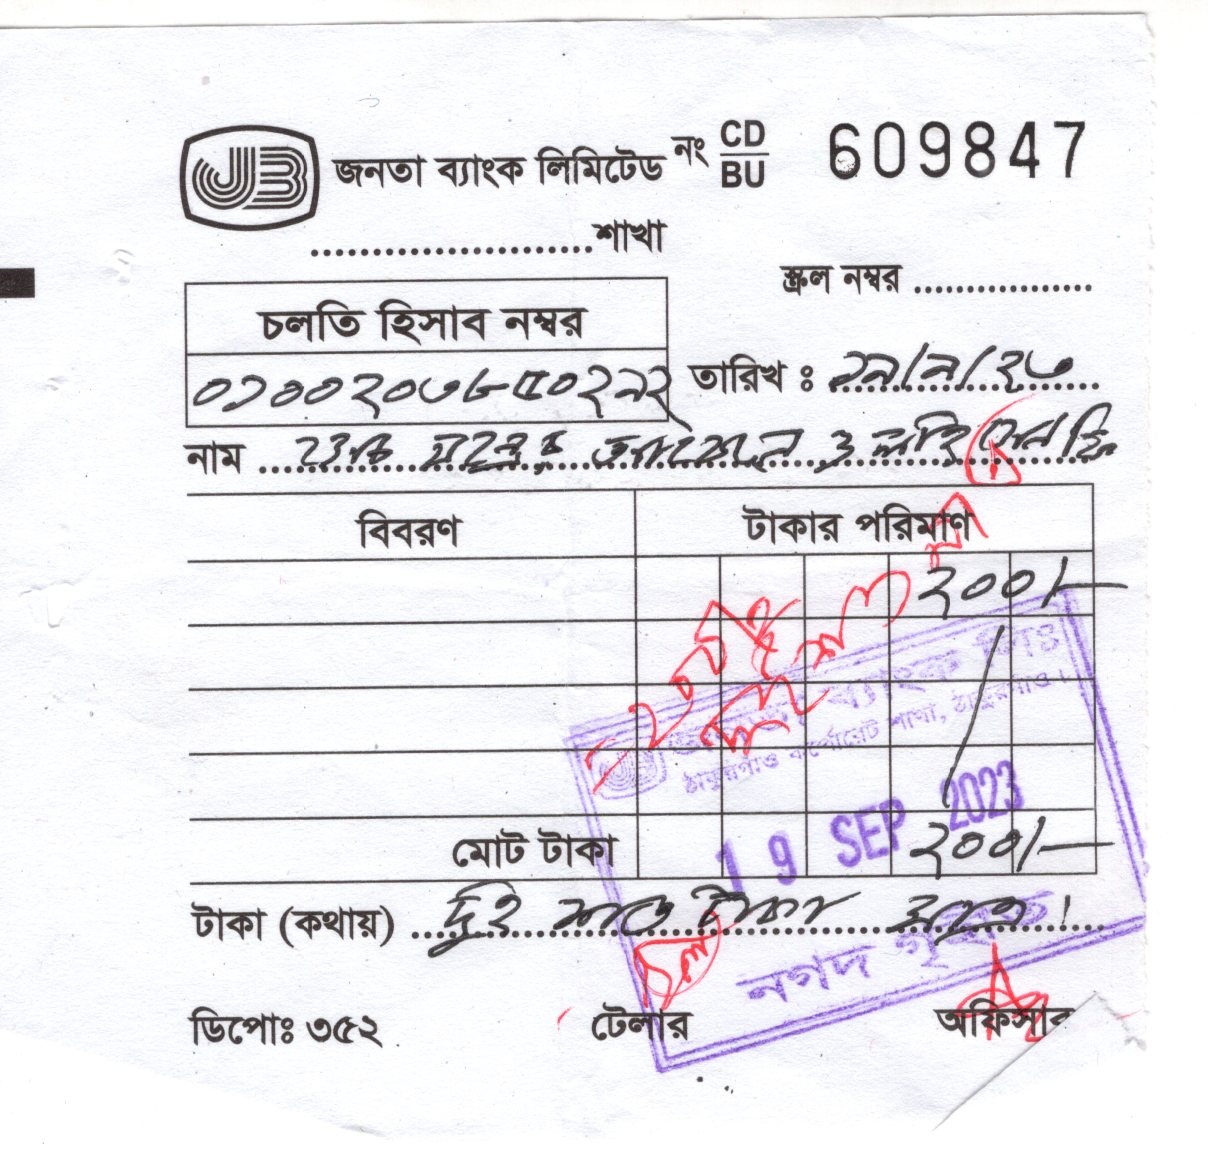 JB জনতা ব্যাংক লিমিটেড নং CD/BU 609847
......................শাখা
স্ক্রল নম্বর .................
চলতি হিসাব নম্বর
০১০০২০৩৮৫০২৯২
তারিখ ঃ ১৯/৯/২৩
নাম
বিবরণ টাকার পরিমাণ
২০০/-
জনতা ব্যাংক লিঃ
ঠাকুরগাঁও কর্পোরেট শাখা, ঠাকুরগাঁও।
19 SEP 2023
মোট টাকা ২০০/-
টাকা (কথায়) দুই শত টাকা মাত্র।
নগদ গৃহীত
ডিপোঃ ৩৫২ টেলার অফিসার